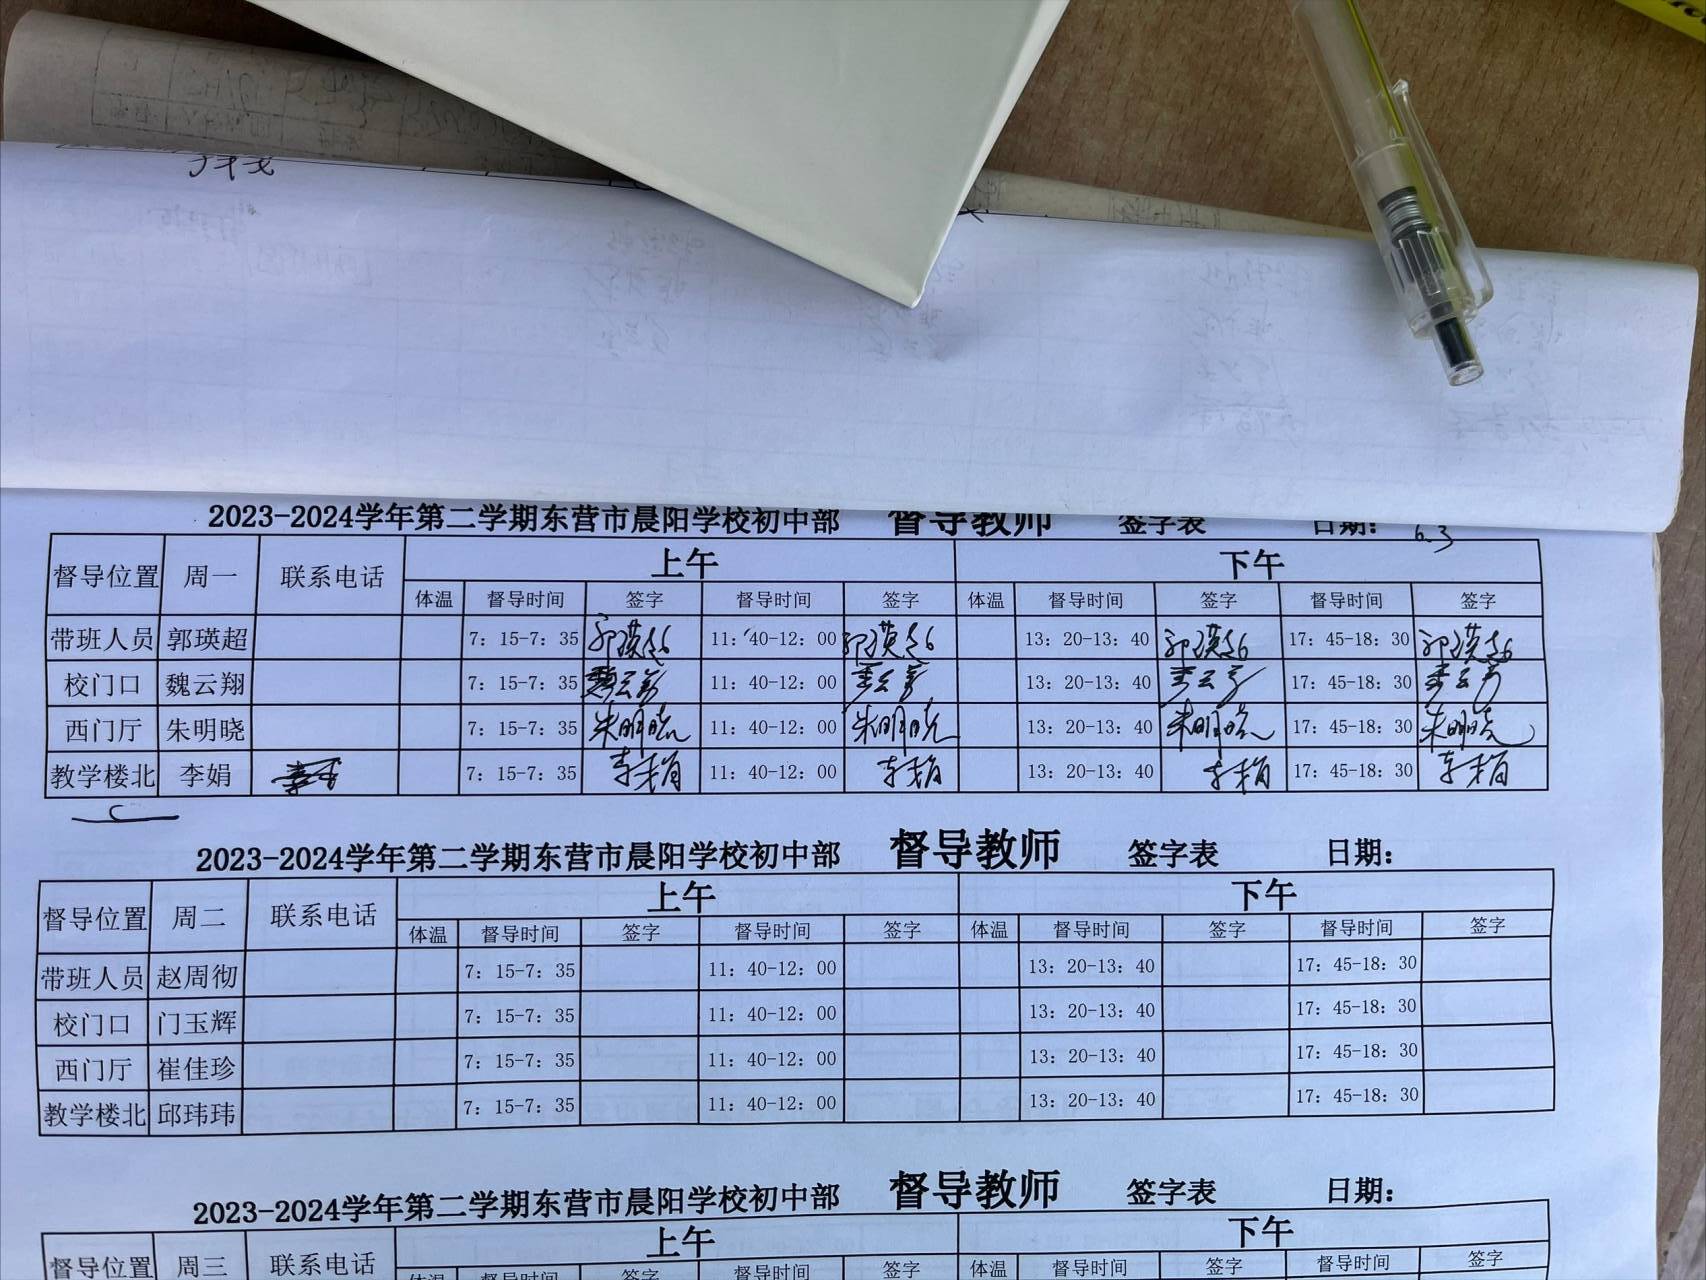 2023-2024学年第二学期东营市晨阳学校初中部 督导教师 签字表 日期: 6.3
督导位置 周一 联系电话 上午 下午
体温 督导时间 签字 督导时间 签字 体温 督导时间 签字 督导时间 签字
带班人员 郭瑛超 7: 15-7: 35 郭瑛超 11: 40-12: 00 郭瑛超 13: 20-13: 40 郭瑛超 17: 45-18: 30 郭瑛超
校门口 魏云翔 7: 15-7: 35 魏云翔 11: 40-12: 00 13: 20-13: 40 17: 45-18: 30
西门厅 朱明晓 7: 15-7: 35 朱明晓 11: 40-12: 00 朱明晓 13: 20-13: 40 朱明晓 17: 45-18: 30 朱明晓
教学楼北 李娟 7: 15-7: 35 李娟 11: 40-12: 00 李娟 13: 20-13: 40 李娟 17: 45-18: 30 李娟
2023-2024学年第二学期东营市晨阳学校初中部 督导教师 签字表 日期:
督导位置 周二 联系电话 上午 下午
体温 督导时间 签字 督导时间 签字 体温 督导时间 签字 督导时间 签字
带班人员 赵周彻 7: 15-7: 35 11: 40-12: 00 13: 20-13: 40 17: 45-18: 30
校门口 门玉辉 7: 15-7: 35 11: 40-12: 00 13: 20-13: 40 17: 45-18: 30
西门厅 崔佳珍 7: 15-7: 35 11: 40-12: 00 13: 20-13: 40 17: 45-18: 30
教学楼北 邱玮玮 7: 15-7: 35 11: 40-12: 00 13: 20-13: 40 17: 45-18: 30
2023-2024学年第二学期东营市晨阳学校初中部 督导教师 签字表 日期:
督导位置 周三 联系电话 上午 下午
体温 督导时间 签字 督导时间 签字 体温 督导时间 签字 督导时间 签字